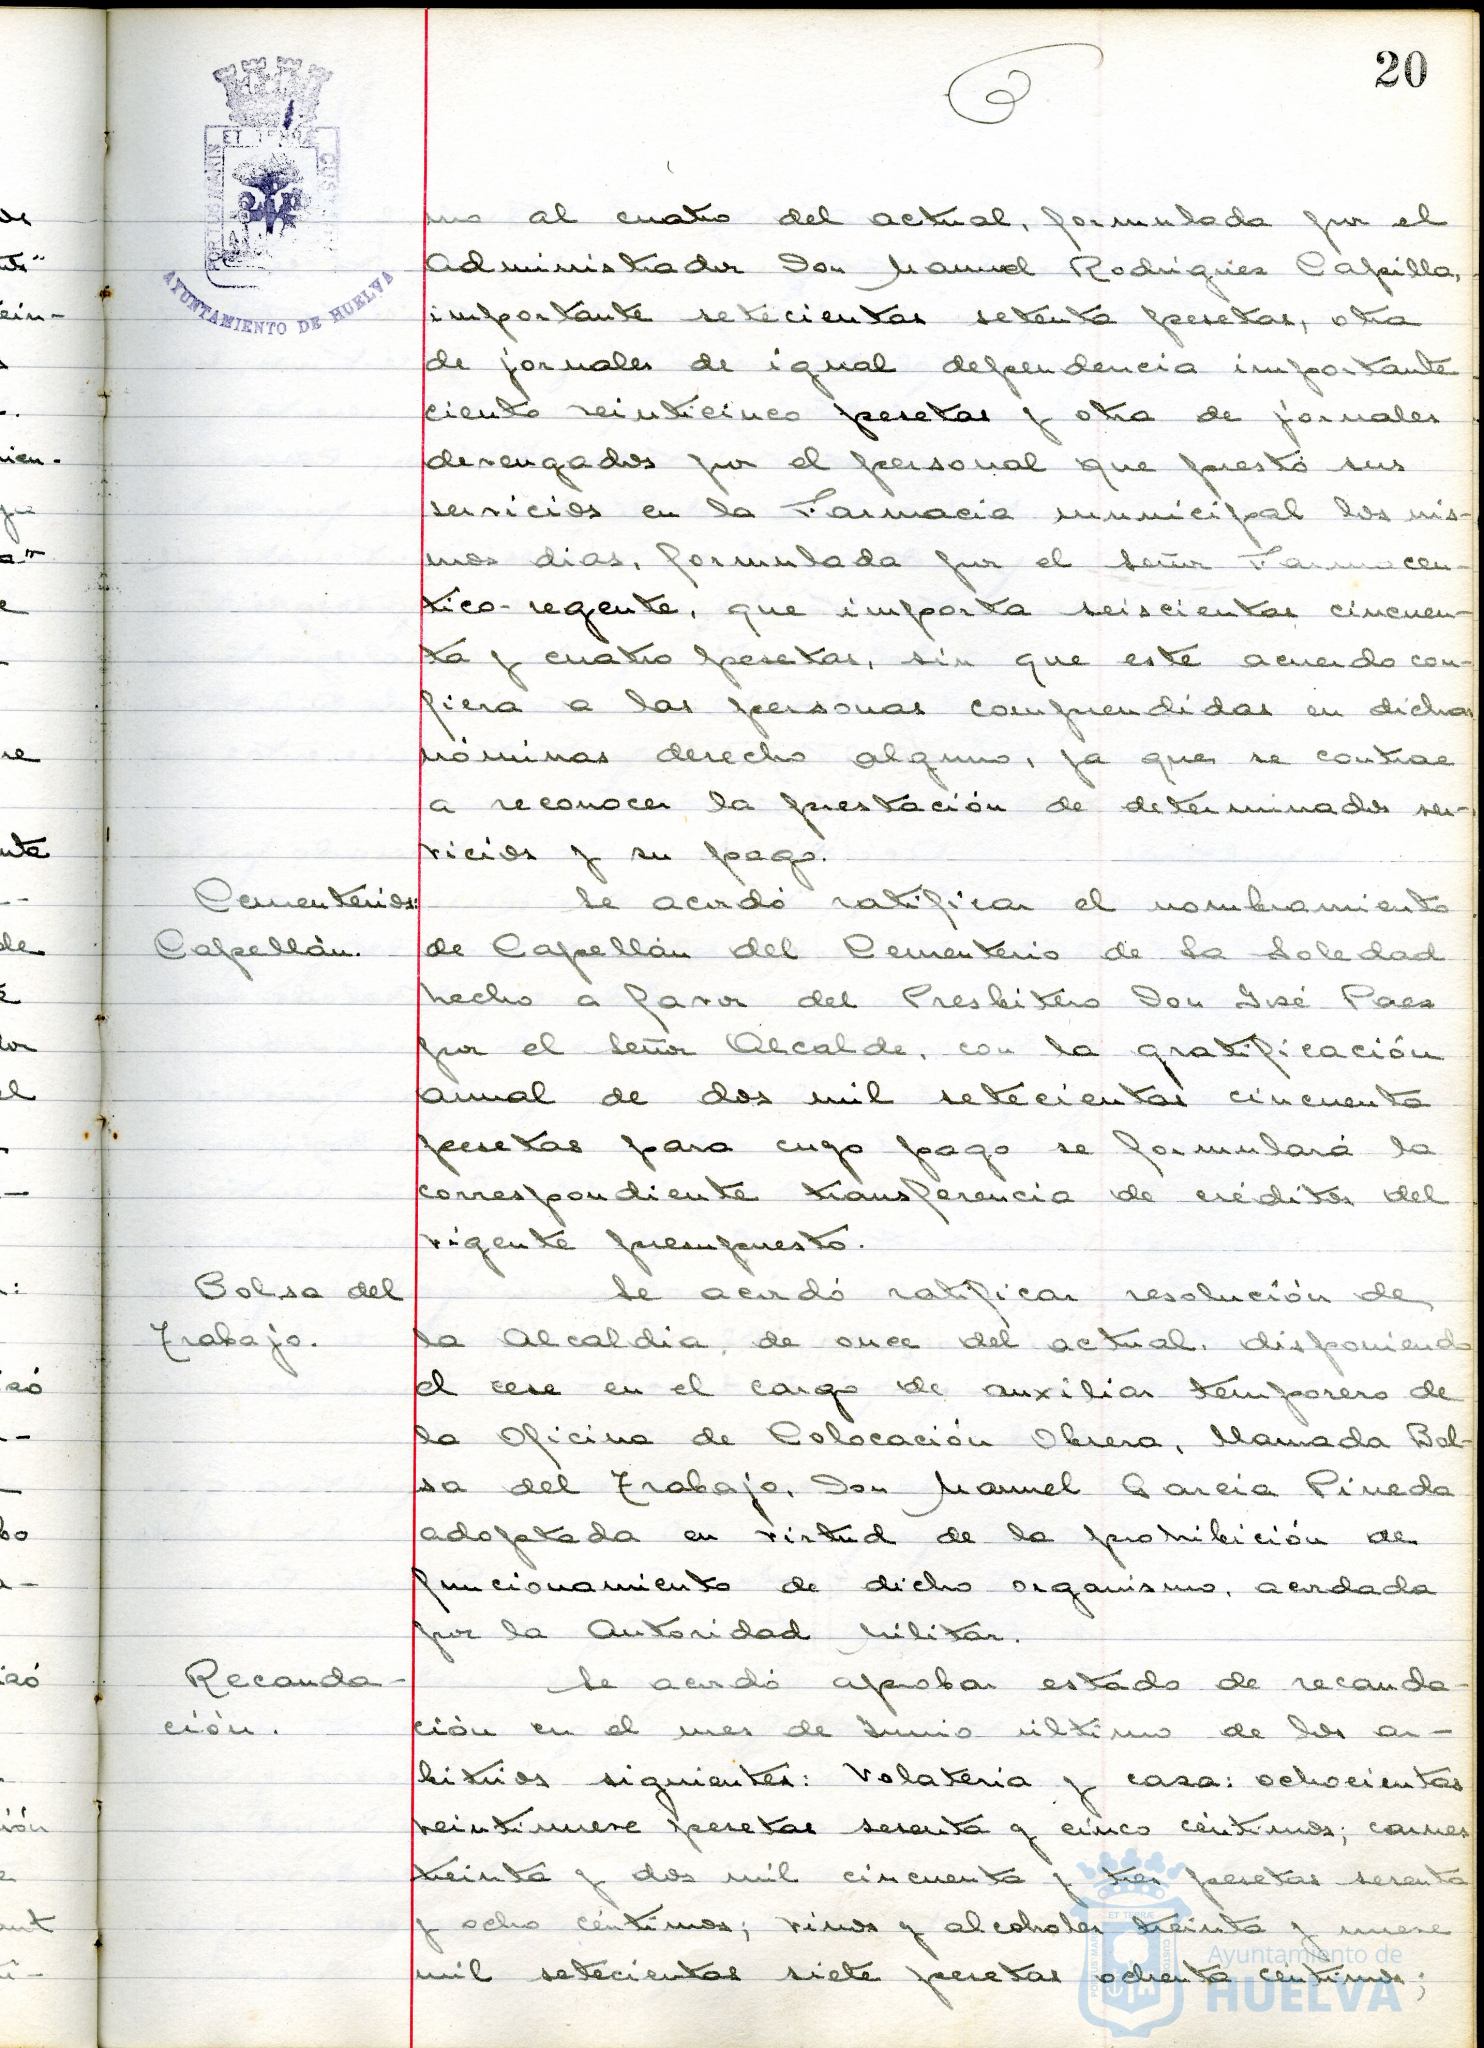 20
ET TERRÆ
AYUNTAMIENTO DE HUELVA
mo al cuatro del actual, formulada por el
Administrador Don Manuel Rodriguez Capilla,
importante setecientas setenta pesetas, otra
de jornales de igual dependencia importante
ciento veinticinco pesetas y otra de jornales
devengados por el personal que prestó sus
servicios en la Farmacia municipal los mis-
mos dias, formulada por el señor Farmaceu-
tico-regente, que importa seiscientas cincuen-
ta y cuatro pesetas, sin que este acuerdo con-
fiera a las personas comprendidas en dichas
nóminas derecho alguno, ya que se contrae
a reconocer la prestación de determinados ser-
vicios y su pago.
Cementerios:
Capellán.
Se acordó ratificar el nombramiento
de Capellán del Cementerio de La Soledad
hecho a favor del Presbitero Don José Paez
por el señor Alcalde, con la gratificación
anual de dos mil setecientas cincuenta
pesetas para cuyo pago se formulará la
correspondiente transferencia de créditos del
vigente presupuesto.
Bolsa del
Trabajo.
Se acordó ratificar resolución de
la Alcaldia, de once del actual, disponiendo
el cese en el cargo de auxiliar temporero de
la Oficina de Colocación Obrera, llamada Bol-
sa del Trabajo, Don Manuel Garcia Pineda
adoptada en virtud de la prohibición de
funcionamiento de dicho organismo, acordada
por la Autoridad Militar.
Recauda-
ción.
Se acordó aprobar estado de recauda-
ción en el mes de Junio último de los ar-
bitrios siguientes: Volateria y caza: ochocientas
veintinueve pesetas sesenta y cinco céntimos; carnes
treinta y dos mil cincuenta y tres pesetas sesenta
y ocho céntimos; vinos y alcoholes treinta y nueve
mil setecientas siete pesetas ochenta céntimos;
Ayuntamiento de
HUELVA